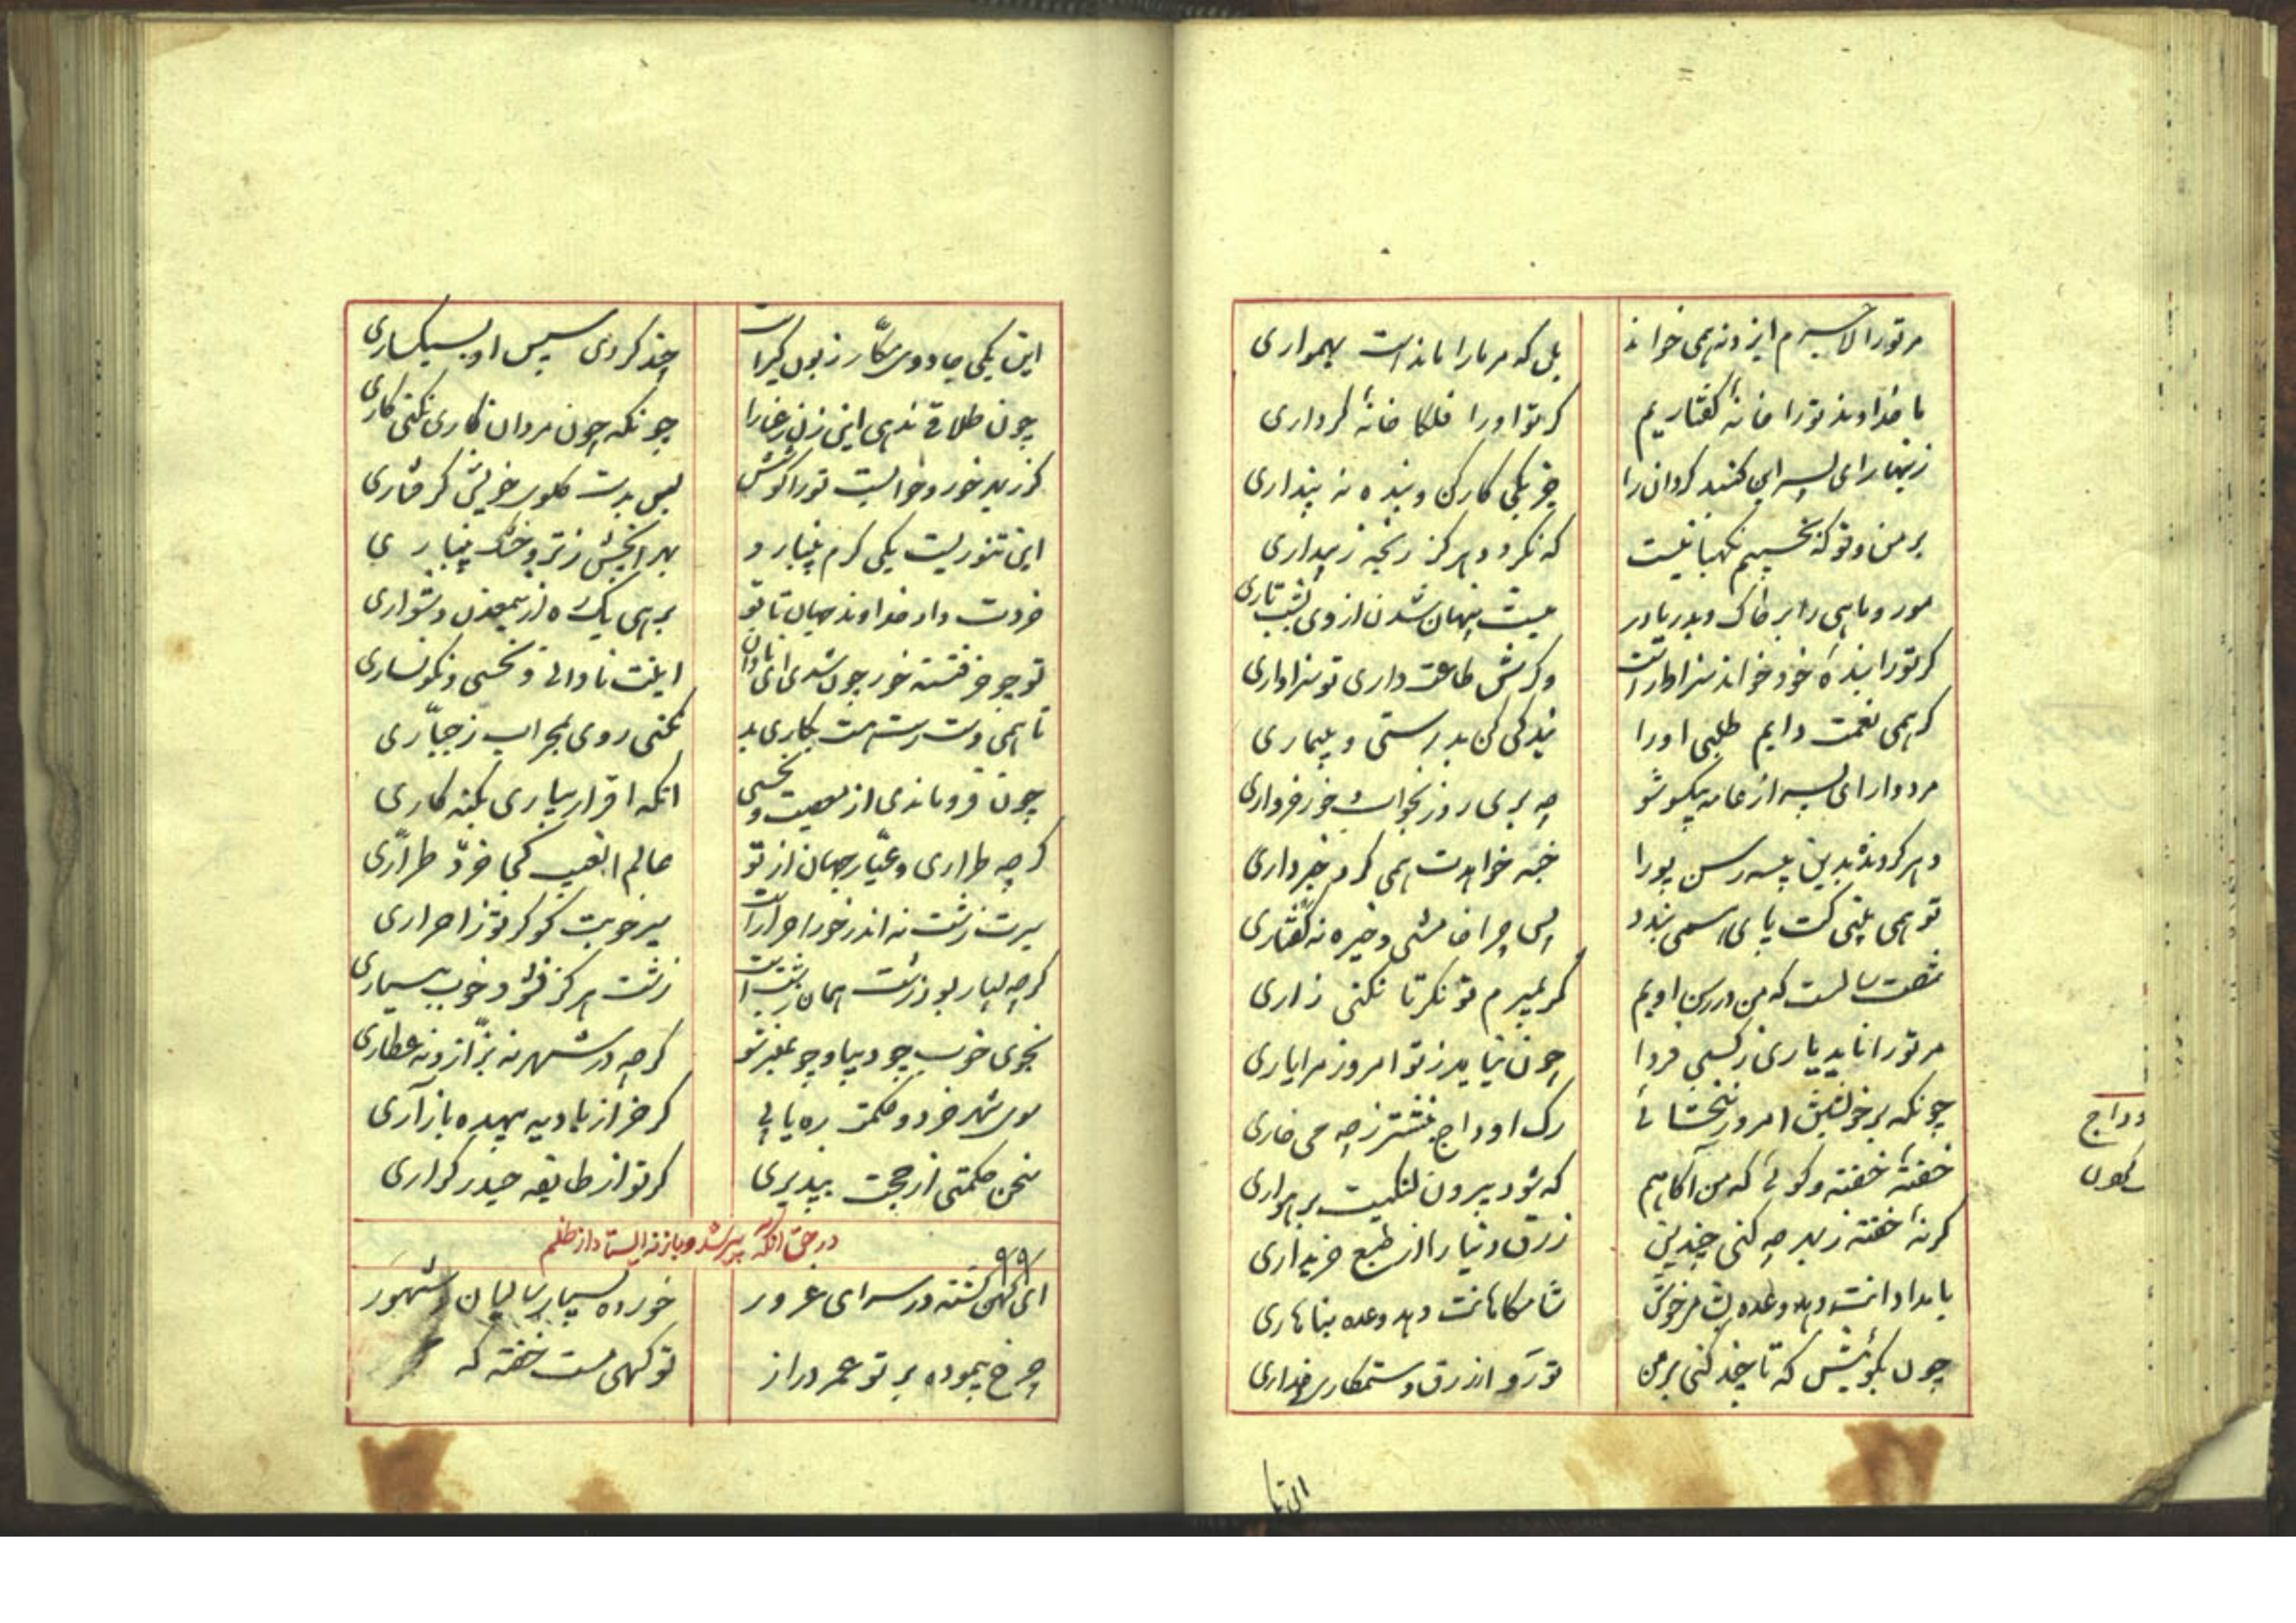 مرتورا لاجرم ایزد نه همی خواند
بل که مر مارا ماندست بهمواری
با خداوند تورا خانهٔ گفتاریم
گر تو اورا فلکا خانهٔ کرداری
زینهار ای پسر این گنبد گردان را
جز یکی کارکن و بنده نه پنداری
بر من و تو که بخسپیم نگهبانیست
که نگردد هرگز رنجه ز بیداری
مور و ماهی را بر خاک و بدریا در
نیست پنهان شدن از وی بشب تاری
گر تورا بندهٔ خود خواند سزاوار است
وگرش طاعت داری تو سزاواری
گر همی نعمت دایم طلبی اورا
بندگی کن بدرستی و بیماری
مردوار ای پسر از عامه بیکسو شو
چه بری روز بخواب و خور خرواری
دهر گردنده بدین پیسه رسن پورا
خبه خواهدت همی کرد خبر داری
تو همی بینی کت پای همی بندد
پس چرا خامشی و خیره نه گفتاری
شصت سالست که من در رسن اویم
گر بمیرم تو نگر تا نکنی زاری
مر تورا ناید یاری ز کسی فردا
چون نیاید ز تو امروز مرا یاری
چونکه بر خویشتن امروز نبخشائی
رگ اوداج بنشتر ز چه می خاری
خفتهٔ خفته و گوئی که من آگاهم
که شود بیرون لنگیت برهواری
گر نهٔ خفته ز بهر چه کنی چندین
زرق دنیا را از طبع خریداری
بامدادانت دهد وعده بشام خوش
شامگاهانت دهد وعده بناهاری
چون بگوئیش که تا چند کنی بر من
تو رو از زرق و ستمکاری خداری
وداج
الی تا
این یکی جادوی مکار زبون گیر است
چند گردی سپس او بسبکساری
چون طلاقی ندهی این زن رعنا را
چونکه چون مردان کاری نکنی کاری
گر ز بهر خور و خوابست تورا کوشش
بس بدست گلوی خویش گرفتاری
این تنوریست یکی گرم بینبارد
بهر انچش ز تر و خشک بینباری
خردت داد خداوند جهان تا تو
برهی یک ره ازین معدن دشواری
تو چو خر فتنهٔ خور چون شدی ای نادان
اینت نادانی و نحسی و نگونساری
تا همی دست رست هست بکاری بد
نکنی روی بمحراب ز جباری
چون فرو ماندی از معصیت و نحسی
انگه اقرار بیاری بگنه کاری
گر چه طراری و عیار جهان از تو
عالم الغیب کجا خرد طراری
سیرت زشت نه اندر خور احرار است
سیر خوبت کو گر تو ز احراری
گر چه بسیار بود زشت همان زشت است
زشت هرگز نشود خوب ببسیاری
بخوی خوب چو دیبا و چو عنبر شو
گر چه در شهر نه بزاز و نه عطاری
سوی شهر خرد و حکمت ره یابی
گر خر از بادیه بیهده باز آری
سخن حکمتی از حجت بپذیری
گر تو از طایفه حیدر کراری
در حق آنکه پیر شد و باز نه ایستاد از ظلم
۹۹
ای کهن گشته در سرای غرور
خورده بسیار سالیان و شهور
چرخ پیموده بر تو عمر دراز
تو گهی مست خفته گه